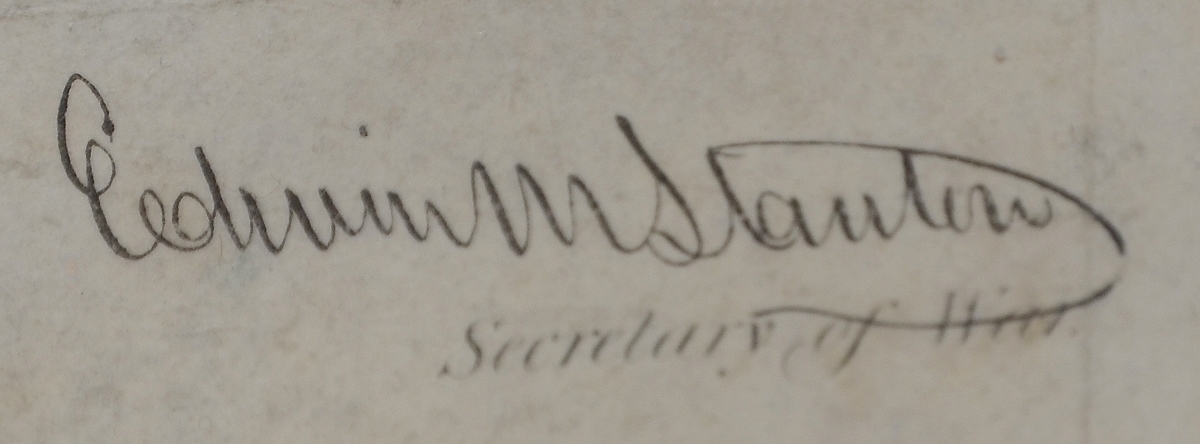 Edwin M Stanton
Secretary of War.